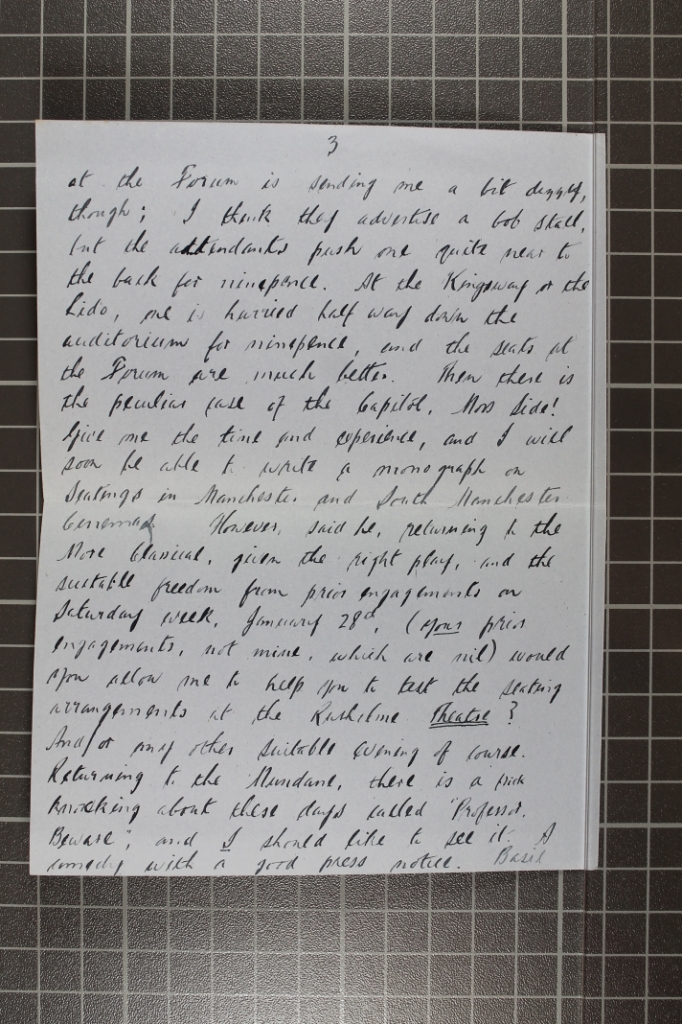 3
at the Forum is sending me a bit dizzy,
though; I think they advertise a bob stall,
but the attendants push one quite near to
the back for ninepence. At the Kingsway or the
Lido, one is hurried half way down the
auditorium for ninepence, and the seats at
the Forum are much better. Then there is
the peculiar case of the Capitol, Moss Side!
Give me the time and experience, and I will
soon be able to write a monograph on
Seatings in Manchester and South Manchester
Cinemas. However, said he, returning to the
More Classical, given the right play, and the
suitable freedom from prior engagements on
Saturday week, January 28th, (your prior
engagements, not mine, which are nil) would
you allow me to help you to test the seating
arrangements at the Rusholme Theatre?
And/or any other suitable evening of course.
Returning to the Mundane, there is a
knocking about these days called "Professor,
Beware", and I should like to see it. A
comedy with a good press notice. Basil